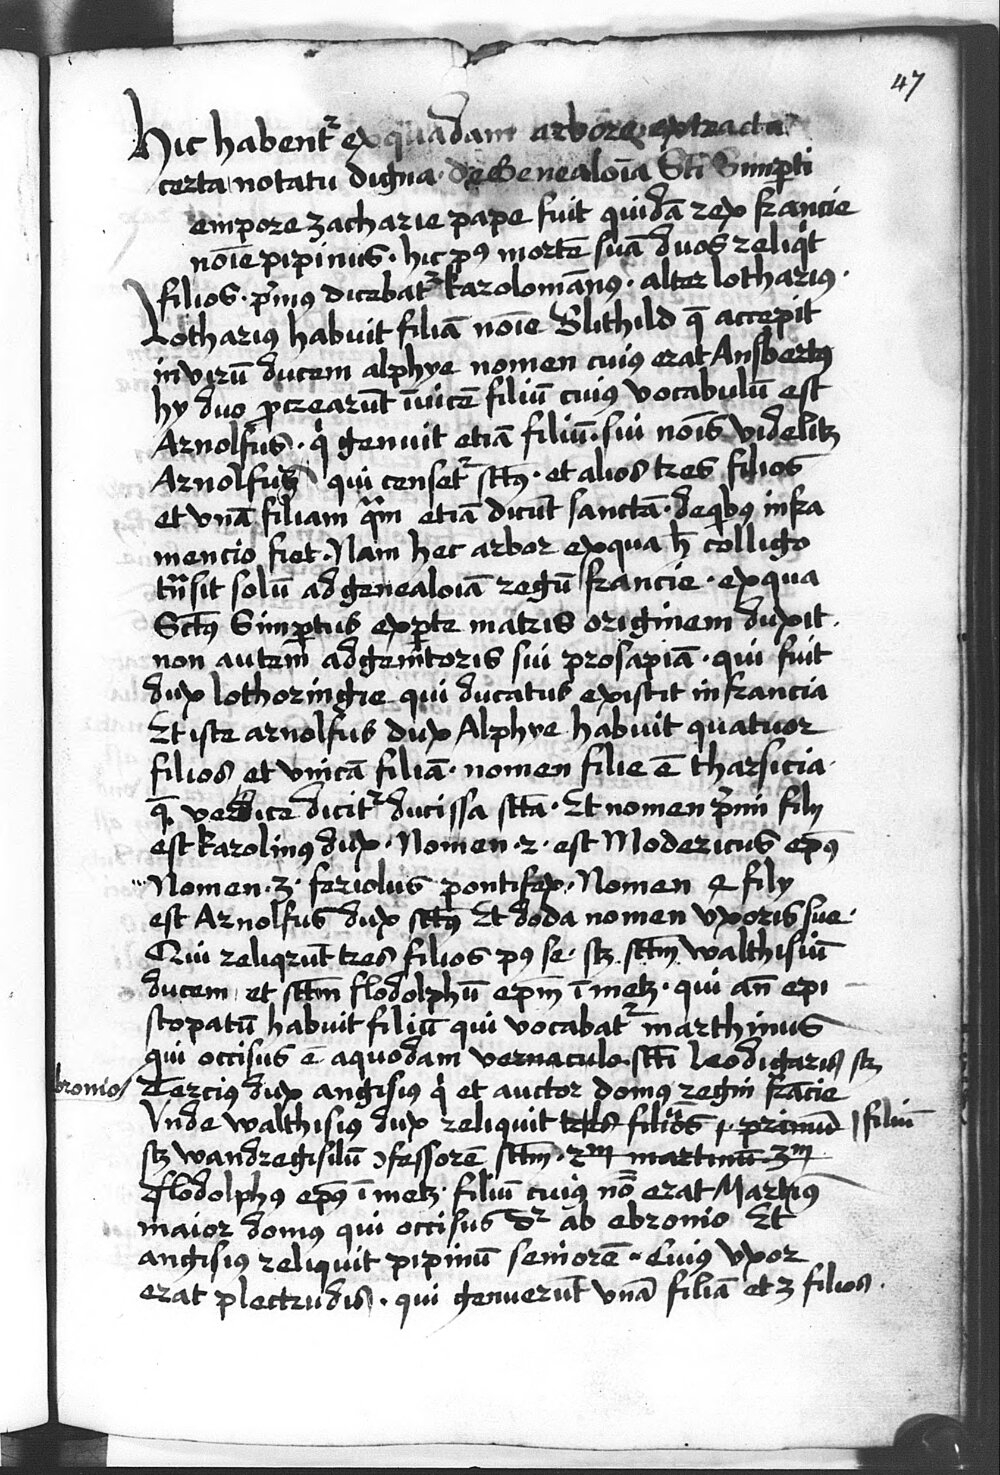 47
Hic habent᷑ ex quadam arbore extracta
certa notatu digna · de Genealoīa Sc̄ti Simp̲ti
empore zacharie pape fuit quidā rex francie
nōīe pipinus · hic pꝰ mortē suā duos reliqͥt
filios · p̄mꝰ dicebat᷑ karolomānꝰ · alter lotharius ·
Lotharius habuit filiā nōīe Blithild q̄ accepit
in virū ducem alphye nomen cuiꝰ erat Ansbertꝰ
hy duo ꝓcrearūt īuicē filiū cuiꝰ vocabulū est
Arnolfus · qͥ genuit etiā filiū · sui nōīs videlitꝫ
Arnolfus qui censet᷑ sc̄tꝰ · et alios tres filios
et vnā filiam quā etiā dicūt sanctā · de qͥbꝰ infra
mencio fiet · Nam hec arbor ex qua h̄ colligo
tn̄ sit solū ad genealoīā regū francie · ex qua
Sc̄tꝰ Simp̲tus ex p̲te matris originem duxit ·
non autem ad genitoris sui prosapiā · qui fuit
dux lothoringie qui ducatus existit in francia
Et iste arnolfus dux Alphye habuit quatuor
filios et vnicā filiā · nomen filie ē tharsicia ·
q̄ veridice dicit᷑ ducissa sc̄ta · Et nomen p̄mi filij
est karolinꝰ dux · Nomen · 2 · est Modericus ep̄ꝰ
Nomen · 3 · feriolus pontifex · Nomen 4 filij
est Arnolfus dux sc̄tꝰ Et doda nomen vxoris sue ·
Qui reliqrūt tres filios pꝰ se · sꝫ sc̄tm walthisiū
ducem et sc̄tm flodolphū ep̄m ī metꝫ · qui an̄ epi
scopatū habuit filiū qui vocabat᷑ marthinus
qui occisus ē a quodam vernaculo sc̄ti leodigarii sꝫ
bronios Tercius dux angisius qͥ et auctor domꝰ regni frācie
Vnde walthisiꝰ dux reliquit tres filios · primū | filiū
sꝫ wandregisilū ↄfessorē sc̄tm · 2m martinū · 3m
flodolphꝰ ep̄ꝰ ī metꝫ · filiū cuiꝰ nō erat Martinꝰ
maior domꝰ qui occisus dr̄ ab ebronio Et
angisiꝰ reliquit pipinū seniorē · Cuiꝰ vxor
erat plectrudis · qui genuerūt vnā filiā et 3 filios ·